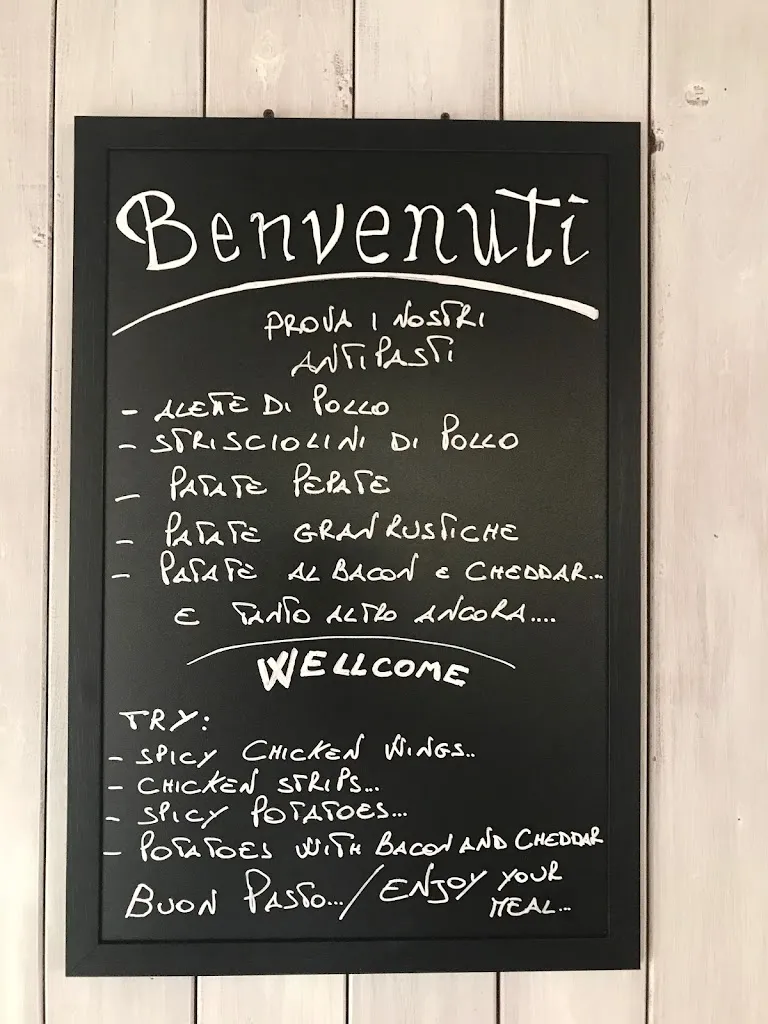 Benvenuti
PROVA I NOSTRI
ANTIPASTI
- ALETTE DI POLLO
- STRISCIOLINI DI POLLO
- PATATE PEPATE
- PATATE GRAN RUSTICHE
- PATATE AL BACON E CHEDDAR...
E TANTO ALTRO ANCORA....
WELLCOME
TRY:
- SPICY CHICKEN WINGS..
- CHICKEN STRIPS...
- SPICY POTATOES...
- POTATOES WITH BACON AND CHEDDAR
BUON PASTO.../ENJOY YOUR
MEAL...